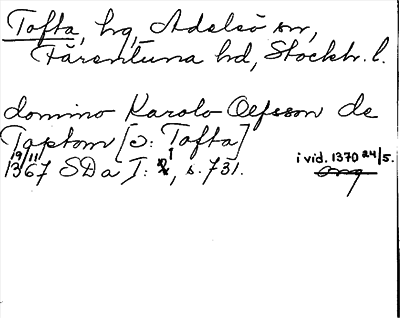 Tofta, hg, Adelsö sn,
Färentuna hd, Stockh. l.
domino Karolo Oefsson de
Toptom [ɔ: Tofta]
19/11 1367 SDa I: 1, s. 731.
i vid. 1370 24/5.